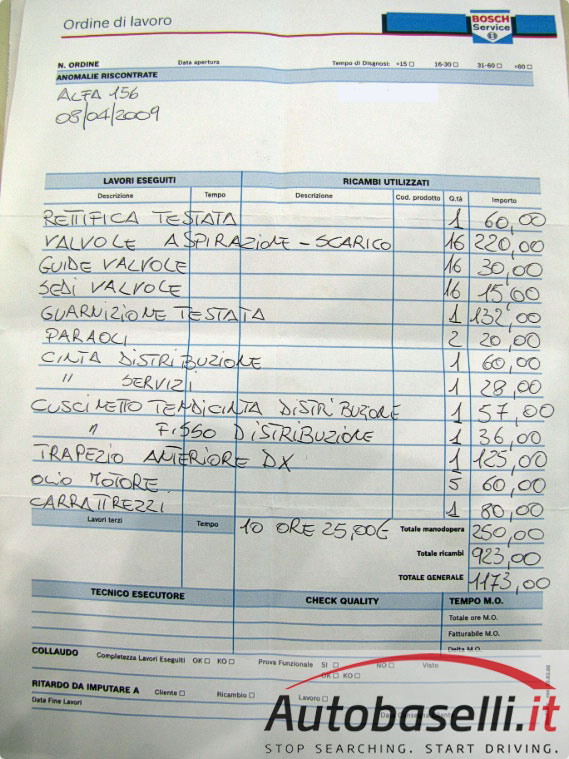 Ordine di lavoro
BOSCH
Service
N. ORDINE Data apertura Tempo di Diagnosi: <15 ☐ 16-30 ☐ 31-60 ☐ >60 ☐
ANOMALIE RISCONTRATE
ALFA 156
08/04/2009
LAVORI ESEGUITI RICAMBI UTILIZZATI
Descrizione Tempo Descrizione Cod. prodotto Q.tà Importo
RETTIFICA TESTATA 1 60,00
VALVOLE ASPIRAZIONE - SCARICO 16 220,00
GUIDE VALVOLE 16 30,00
SEDI VALVOLE 16 15,00
GUARNIZIONE TESTATA 1 132,00
PARAOLI 2 20,00
CINTA DISTRIBUZIONE 1 60,00
" SERVIZI 1 28,00
CUSCINETTO TENDICINTA DISTRIBUZIONE 1 57,00
" FISSO DISTRIBUZIONE 1 36,00
TRAPEZIO ANTERIORE DX 1 125,00
OLIO MOTORE 5 60,00
CARRATTREZZI 1 80,00
Lavori terzi Tempo 10 ORE 25,00€ Totale manodopera 250,00
Totale ricambi 923,00
TOTALE GENERALE 1173,00
TECNICO ESECUTORE CHECK QUALITY TEMPO M.O.
Totale ore M.O.
Fatturabile M.O.
Delta M.O.
COLLAUDO Completezza Lavori Eseguiti OK ☐ KO ☐ Prova Funzionale SI ☐ NO ☐ Visto
OK ☐ KO ☐
RITARDO DA IMPUTARE A Cliente ☐ Ricambio ☐ Lavoro ☐
Data Fine Lavori
Autobaselli.it
STOP SEARCHING. START DRIVING.